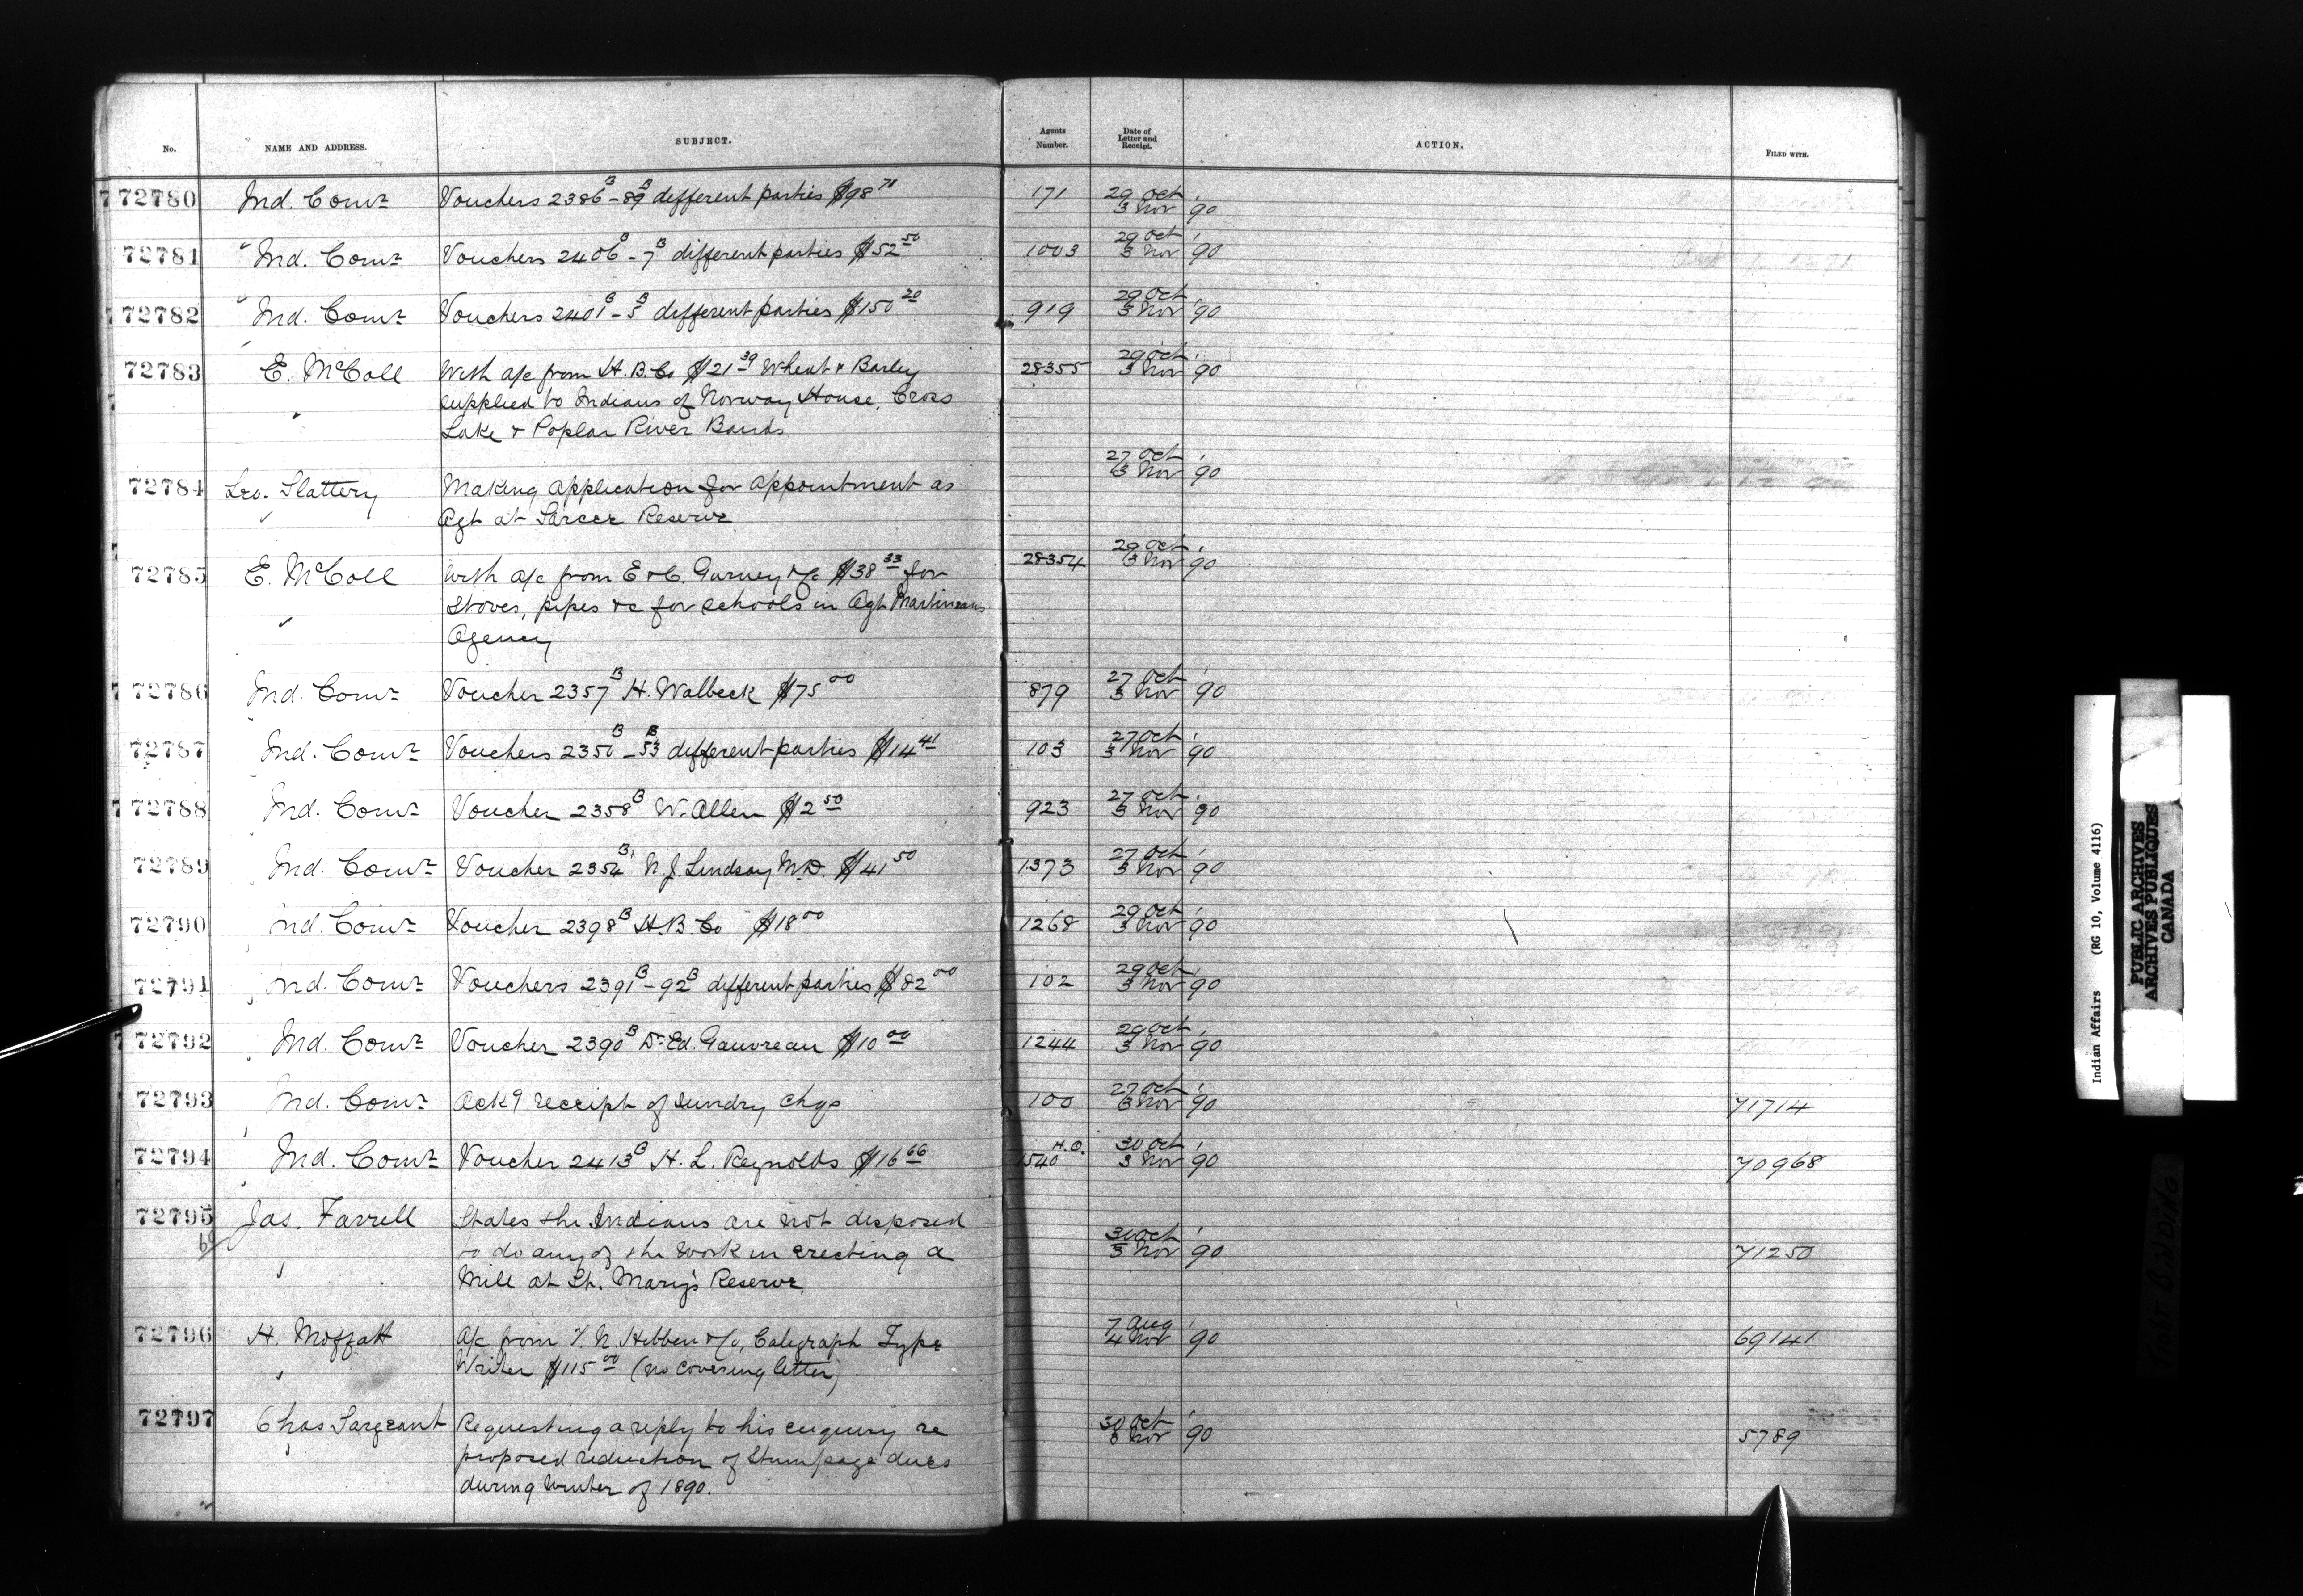 No. NAME AND ADDRESS. SUBJECT. Agents Number. Date of Letter and Receipt. ACTION. FILED WITH.
72780 Ind. Comr Vouchers 2386B-89B different parties $98 71 171 29 Oct 3 Nov '90
72781 " Ind. Comr Vouchers 2406B-7B different parties $52 50 1003 29 Oct 3 Nov '90
72782 " Ind. Comr Vouchers 2401B-5B different parties $150 20 919 29 Oct 3 Nov '90
72783 E. McColl With a/c from H.B.Co $21 39 Wheat & Barley 28355 29 Oct 3 Nov '90
supplied to Indians of Norway House, Cross
Lake & Poplar River Bands
72784 Slattery Making application for appointment as 27 Oct 3 Nov '90
Agt at Sarcee Reserve
72785 E. McColl With a/c from E & C. Gurney & Co $38 33 for 28354 29 Oct 3 Nov '90
Stoves, pipes &c for schools in Agt Martineaus
Agency
72786 Ind. Comr Voucher 2357B H. Walbeck $75 00 879 27 Oct 3 Nov '90
72787 Ind. Comr Vouchers 2350B-53B different parties $14 41 103 27 Oct 3 Nov '90
72788 Ind. Comr Voucher 2358B W. Allen $2 50 923 27 Oct 3 Nov '90
72789 Ind. Comr Voucher 2354B N. J. Lindsay M.D. $41 50 1373 27 Oct 3 Nov '90
72790 Ind. Comr Voucher 2398B H.B. Co $18 00 1268 29 Oct 3 Nov '90
72791 Ind. Comr Vouchers 2391B-92B different parties $82 00 102 29 Oct 3 Nov '90
72792 Ind. Comr Voucher 2390B Dr Ed. Gauvreau $10 00 1244 29 Oct 3 Nov '90
72793 Ind. Comr Ackg receipt of sundry chqs 100 27 Oct 3 Nov '90 71714
72794 Ind. Comr Voucher 2413B H. L. Reynolds $16 66 H.O. 1540 30 Oct 3 Nov '90 70968
72795 Jas. Farrell States the Indians are not disposed
to do any of the work in erecting a 31 Oct 3 Nov '90 71250
Mill at St. Mary's Reserve
72796 H. Moffatt a/c from T. N. Hibben & Co, Caligraph Type 7 Aug 4 Nov '90 69141
Writer $115 00 (no covering letter)
72797 Chas Sargeant Requesting a reply to his enquiry re 30 Oct 3 Nov '90 5789
proposed reduction of Stumpage dues
during Winter of 1890.
Indian Affairs (RG 10, Volume 4116)
PUBLIC ARCHIVES
ARCHIVES PUBLIQUES
CANADA
TIGHT BINDING